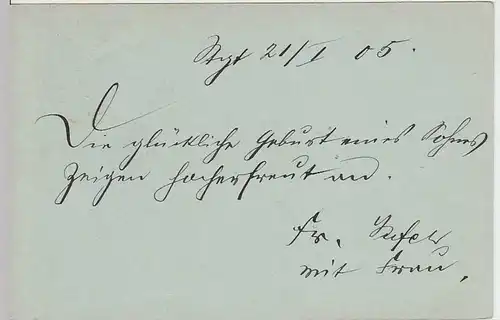 Stgt 21/I 05.
Die glückliche Geburt eines Sohnes
zeigen hocherfreut an.
Fr.
mit Frau,